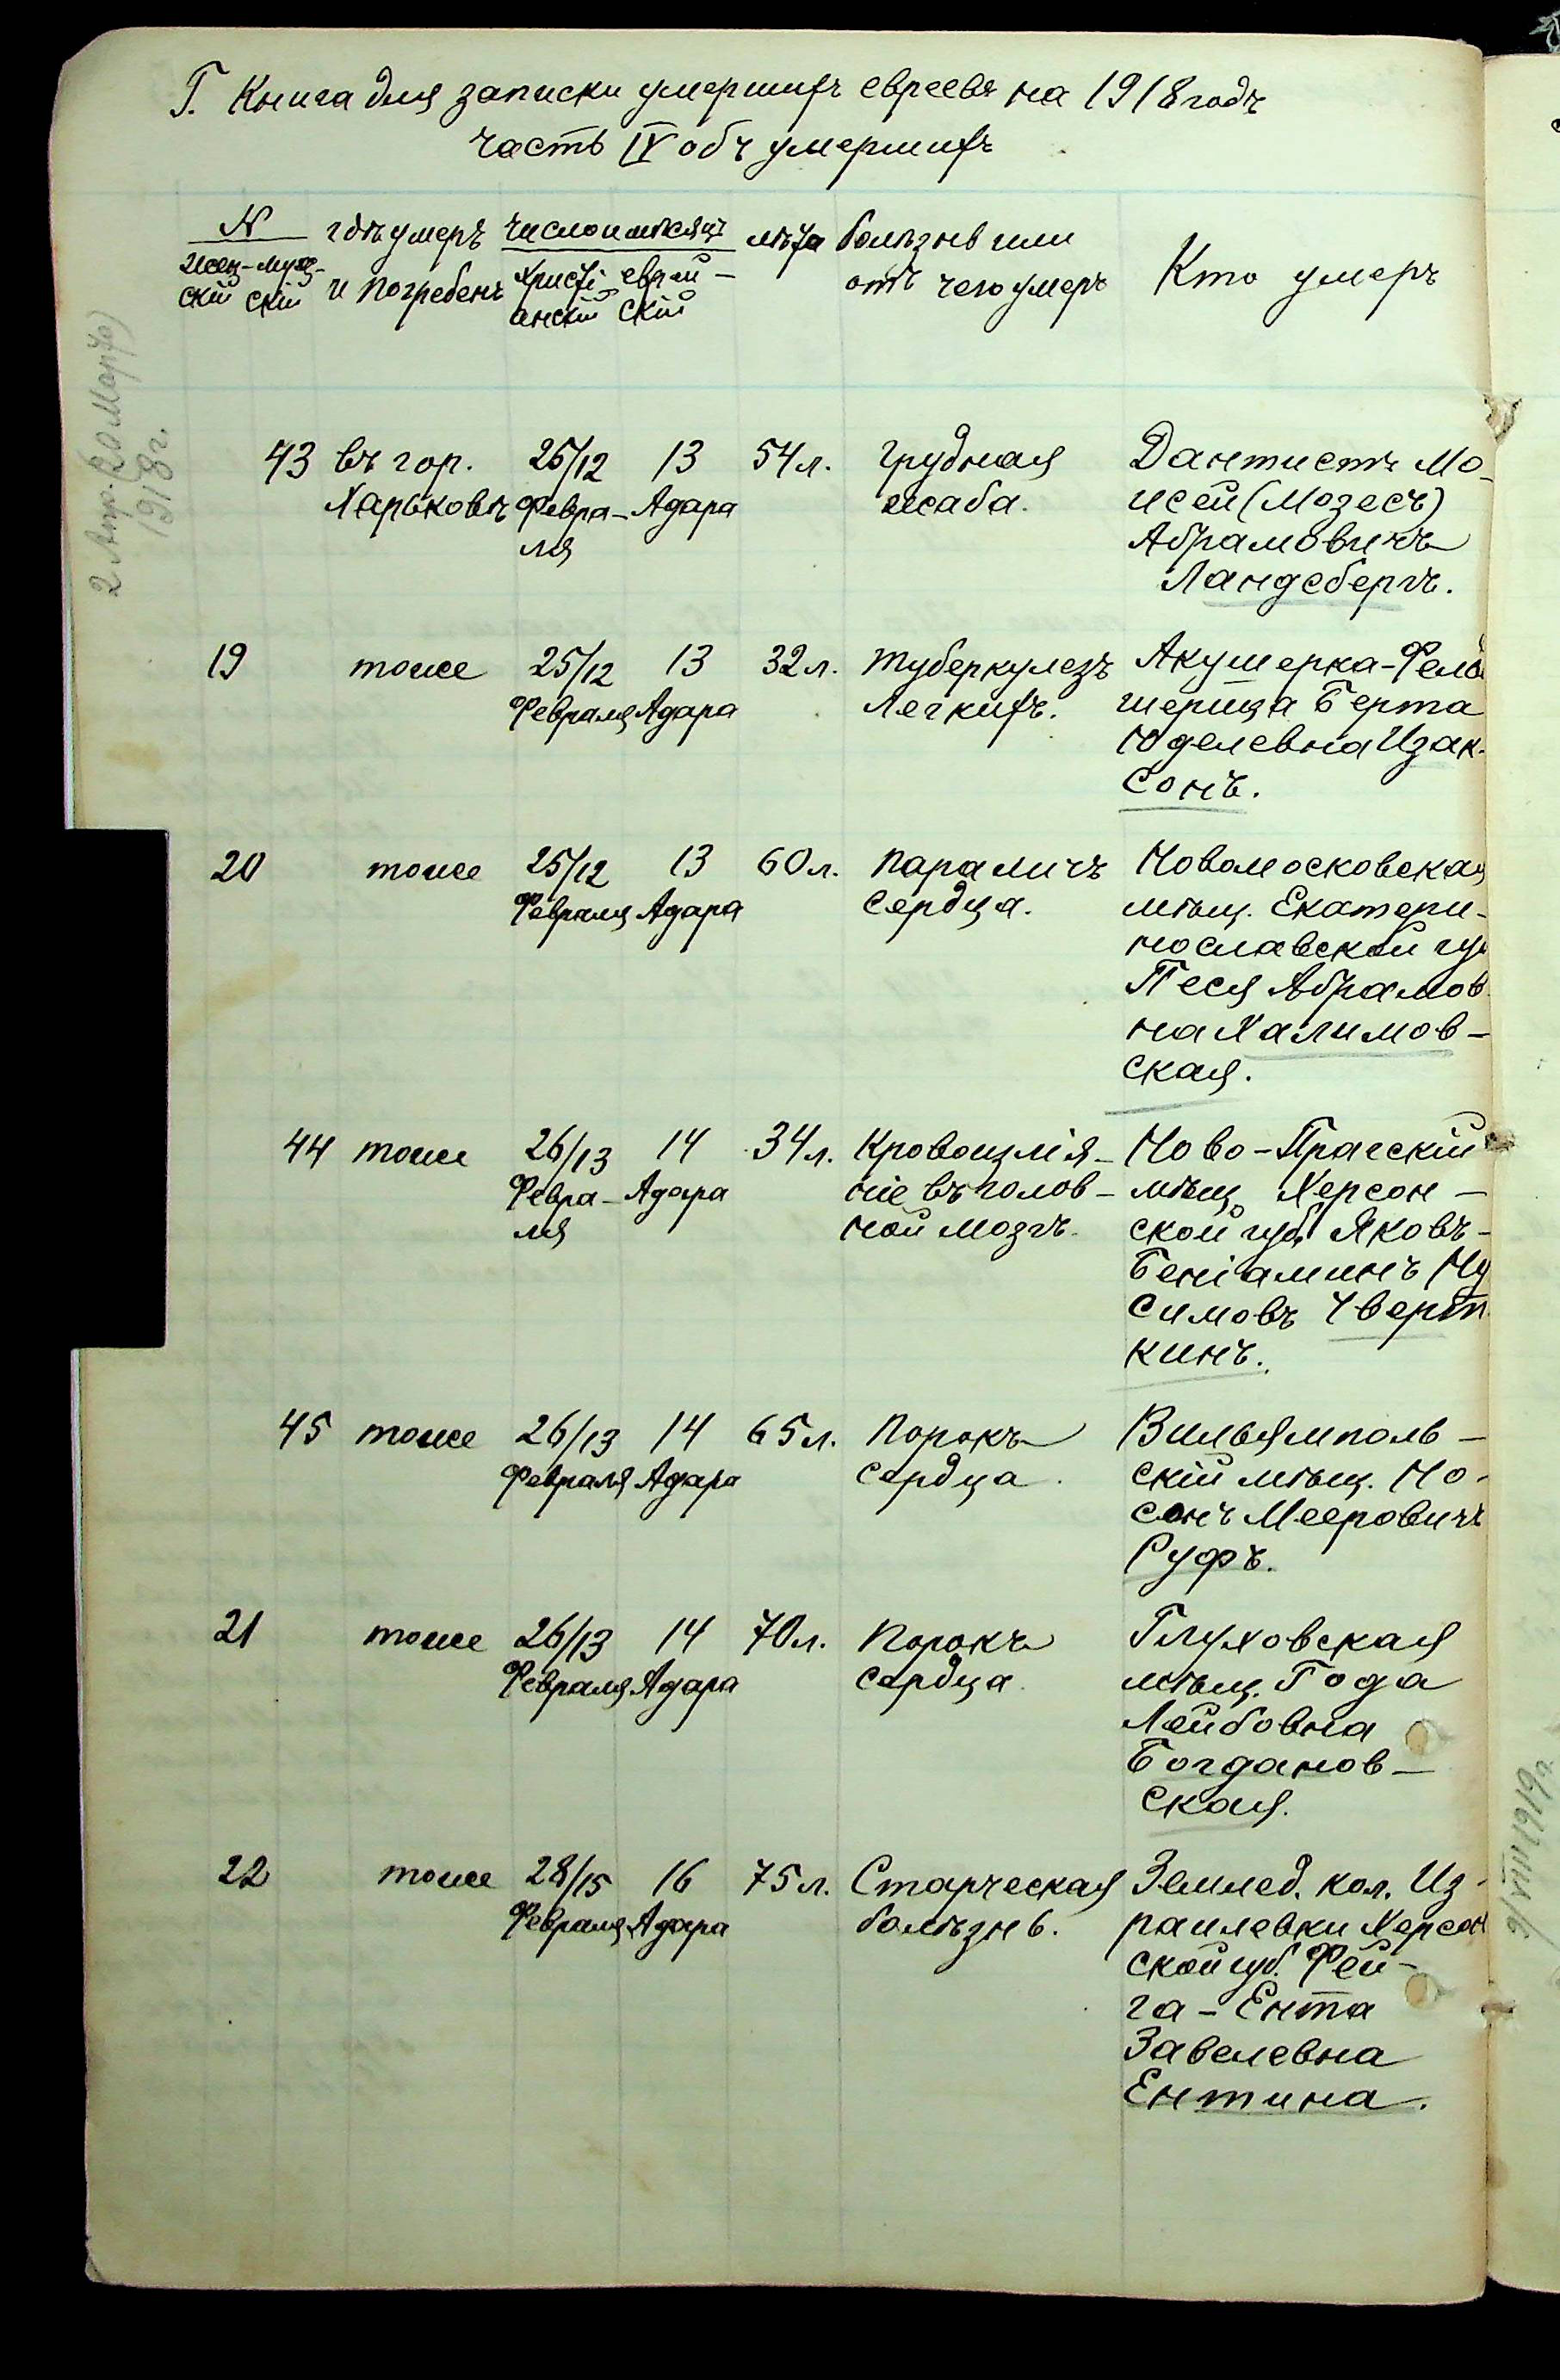 Г. Книга для записки умершихъ евреевъ на 1918 годъ
часть IV объ умершихъ
N гдѣ умеръ число и мѣсяцъ лѣта болѣзнь или
женскій мужскій и погребенъ христіанскій еврейскій отъ чего умеръ Кто умеръ
2 Апр. (20 Марта)
1918 г.
43 въ гор. 25/12 13 54 л. Грудная Дантистъ Мо-
Харьковѣ Февра- Адара жаба. исей (Мозесъ)
ля Абрамовичъ
Ландсбергъ.
19 тоже 25/12 13 32 л. туберкулезъ Акушерка-Фель
Февраля Адара Легкихъ. шерица Берта
Юделевна Изак-
сонъ.
20 тоже 25/12 13 60 л. параличъ Новомосковская
Февраля Адара Сердца. мѣщ. Екатери-
нославской гу
Песя Абрамов
на Халимов-
ская.
44 тоже 26/13 14 34 л. Кровоизлія- Ново-Прагскій
Февра- Адара ніе въ голов- мѣщ Херсон-
ля ной мозгъ. ской губ Яковъ-
Беніаминъ Ну
симовъ Чверт
кинъ.
45 тоже 26/13 14 65 л. Порокъ Вильямполь-
Февраля Адара сердца. скій мѣщ. Но-
сонъ Мееровичъ
Руфъ.
21 тоже 26/13 14 70 л. Порокъ Глуховская
Февраля Адара сердца. мѣщ. Года
Лейбовна
Богданов-
ская.
22 тоже 28/15 16 75 л. Старческая Землед. кол. Из-
Февраля Адара болѣзнь. раилевки Херсон
ской губ. Фей-
га-Ента
Завелевна
Ентина.
VIII 1919 г.